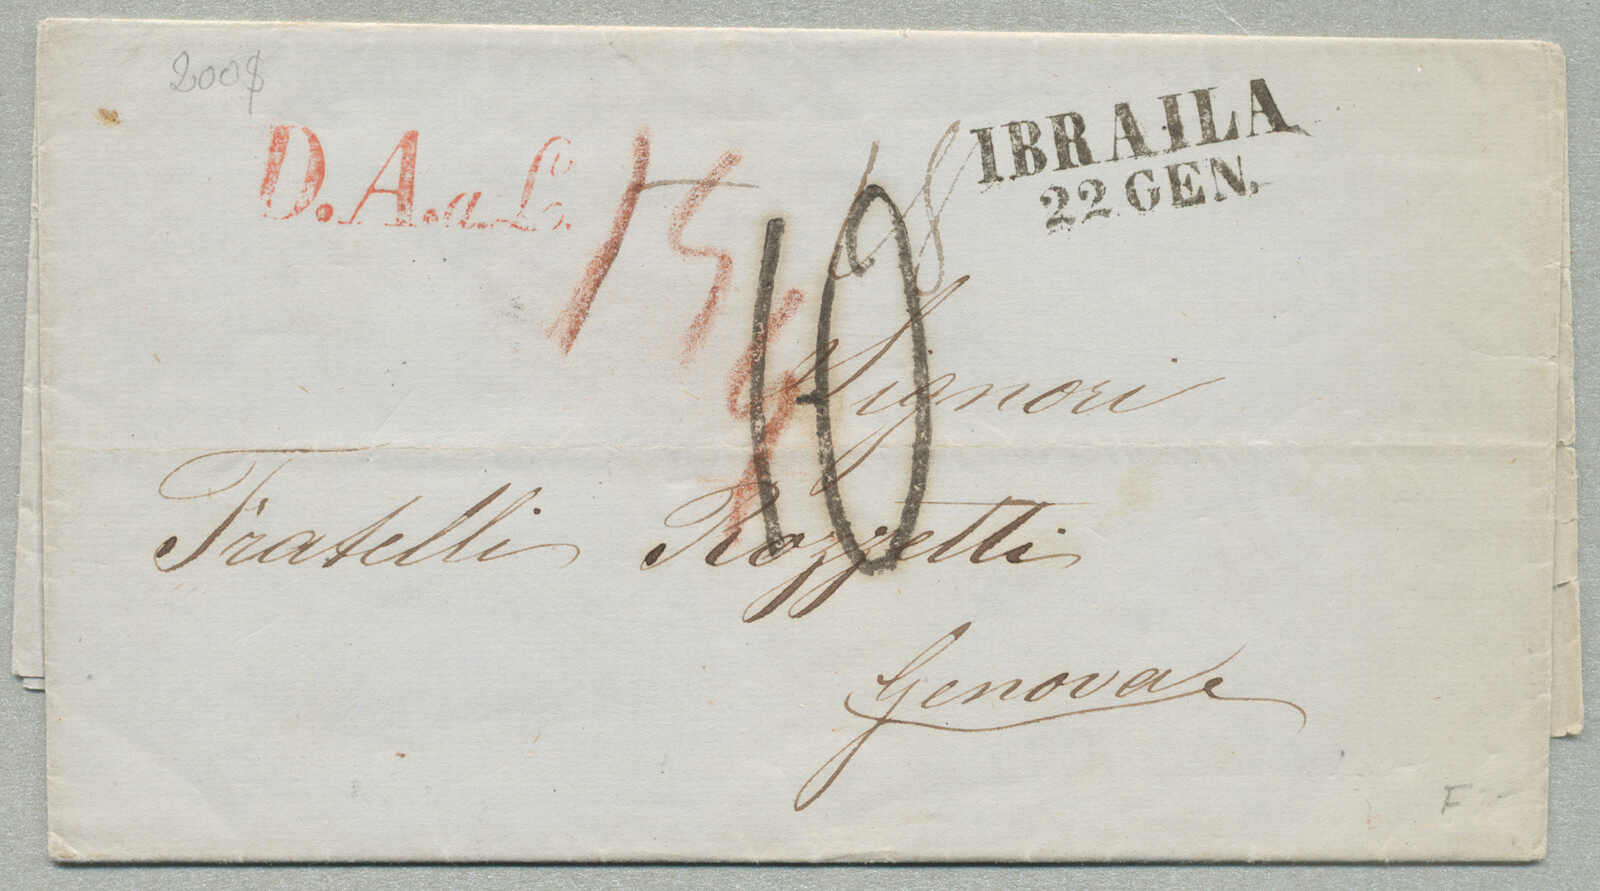 200$
IBRAILA
22 GEN.
D. A. a. L.
10
Signori
Fratelli Rozzetti
Genova
F